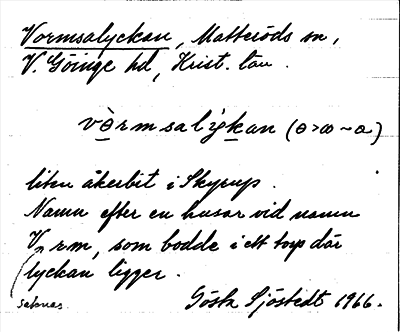 Vormsalyckan, Matteröds sn,
V. Göinge hd, Krist. län.
vè̠rmsalýk̠an (ɵ>ω~a)
liten åkerbit i Skyrup.
Namn efter en husar vid namn
V rm, som bodde i ett torp där
lyckan ligger.
saknas
Gösta Sjöstedt 1966.